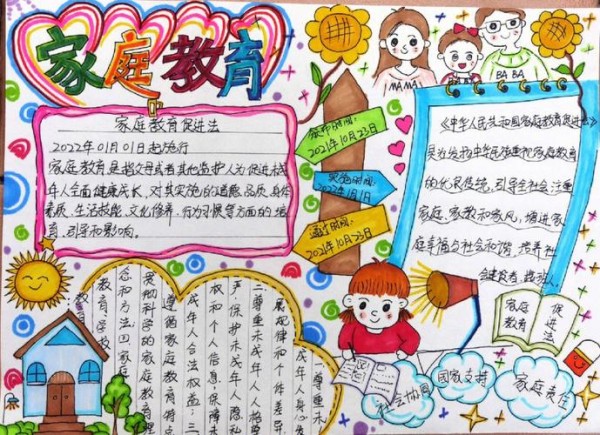 家庭教育
MAMA
BABA
家庭教育促进法
2022年01月01日起施行
家庭教育是指父母或者其他监护人为促进未成
年人全面健康成长，对其实施的道德品质、身体
素质、生活技能、文化修养、行为习惯等方面的培
育、引导和影响。
颁布时间：
2021年10月23日
实施时间：
2022年1月1日
通过时间：
2021年10月23日
《中华人民共和国家庭教育促进法》
是为发扬中华民族重视家庭教育
的优良传统，引导全社会注重
家庭、家教和家风，增进家
庭幸福与社会和谐，培养社
会建设者、接班人。
尊重未
成年人身心发
展规律和个体差异
二尊重未成年人人格尊
严，保护未成年人隐私
权和个人信息，保障未
成年人合法权益；三
遵循家庭教育特点
贯彻科学的家庭教育理
念和方法四家庭
教育、学校
教育
家庭
教育
促
进
法
社会协同
国家支持
家庭责任